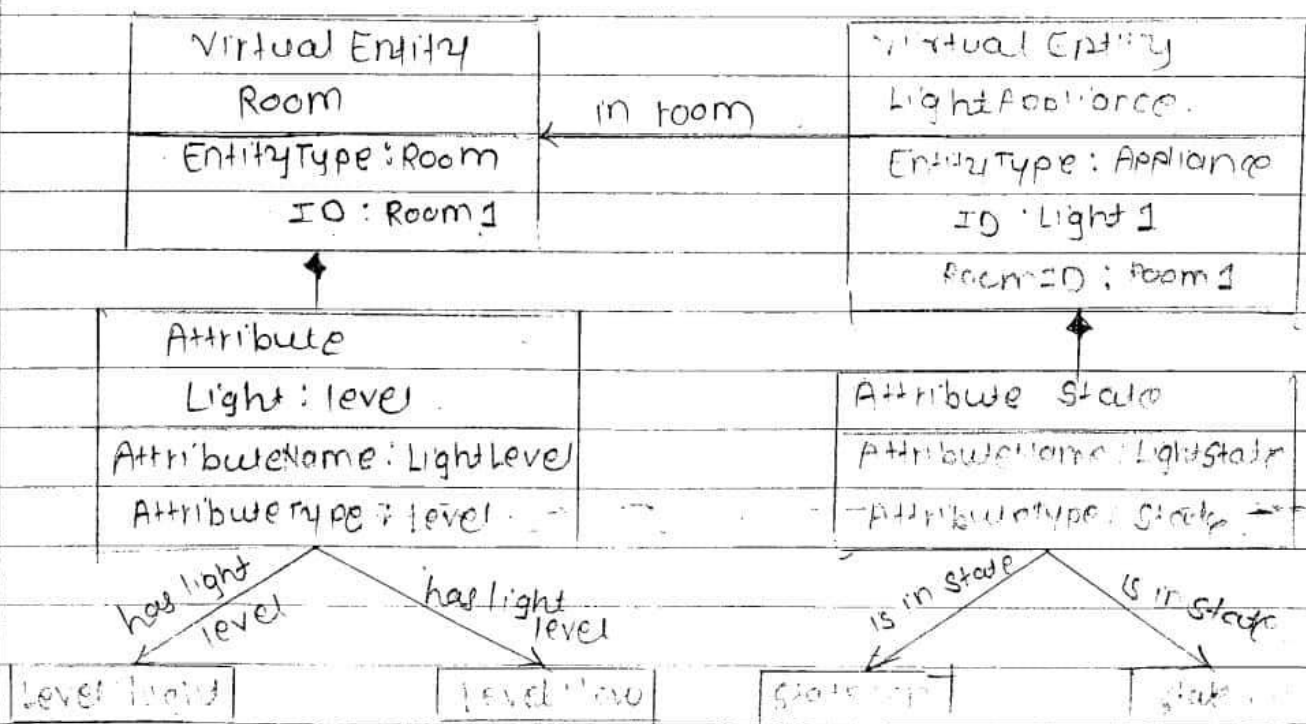 Virtual Entity
Room
EntityType : Room
ID : Room 1
in room
Virtual Entity
EntityType : Appliance
ID : Light 1
RoomID : Room 1
Attribute
Light : level
AttributeName : LightLevel
AttributeType : level
Attribute State
AttributeName : LightState
AttributeType : State
has light
level
has light
level
is in state
is in state
Level
Level : low
State
State